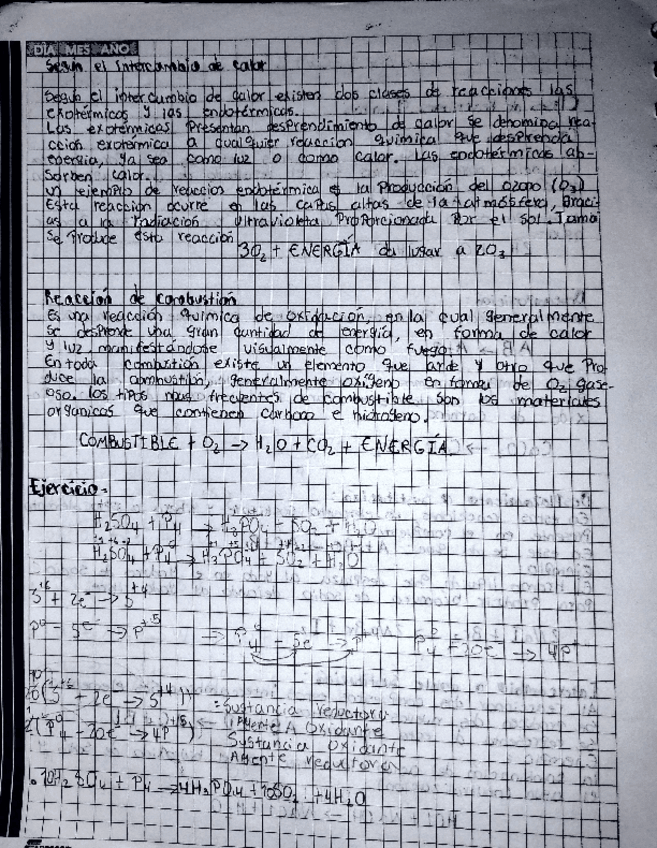 DIA MES AÑO
Segun el Intercambio de calor
Segun el intercambio de calor existen dos clases de reacciones las
exotérmicas y las endotérmicas.
Las exotermicas Presentan desprendimiento de calor se denomina rea-
ccion exotermica a cualquier reaccion quimica que desprenda
energia, ya sea como luz o como calor. Las endotérmicas ab-
sorben calor.
un ejemplo de reaccion endotérmica es la Produccion del ozono (O₃)
Esta reaccion ocurre en las capas altas de la atmósfera, Graci-
as a la radiacion ultravioleta Proporcionada Por el sol.
Se Produce esta reaccion
3O₂ + ENERGÍA da lugar a 2O₃
Reacción de Combustión
Es una reacción química de oxidación, en la cual generalmente
se desprende una gran cantidad de energía, en forma de calor
y luz manifestándose visualmente como fuego.
En toda combustión existe un elemento que arde y otro que Pro-
duce la combustión, generalmente oxígeno en forma de O₂ gase-
oso. los tipos mas frecuentes de combustible son los materiales
organicos que contienen carbono e hidrogeno.
COMBUSTIBLE + O₂ → H₂O + CO₂ + ENERGÍA
Ejercicio.
H₂SO₄ + P₄ → H₃PO₄ + SO₂ + H₂O
H₂SO₄ + P₄ → H₃PO₄ + SO₂ + H₂O
S⁺⁶ + 2e⁻ → S⁺⁴
P⁰ - 5e⁻ → P⁺⁵
= Sustancia reductora
Agente Oxidante
Sustancia Oxidante
Agente reductora
10H₂SO₄ + P₄ → 4H₃PO₄ + 10SO₂ + 4H₂O